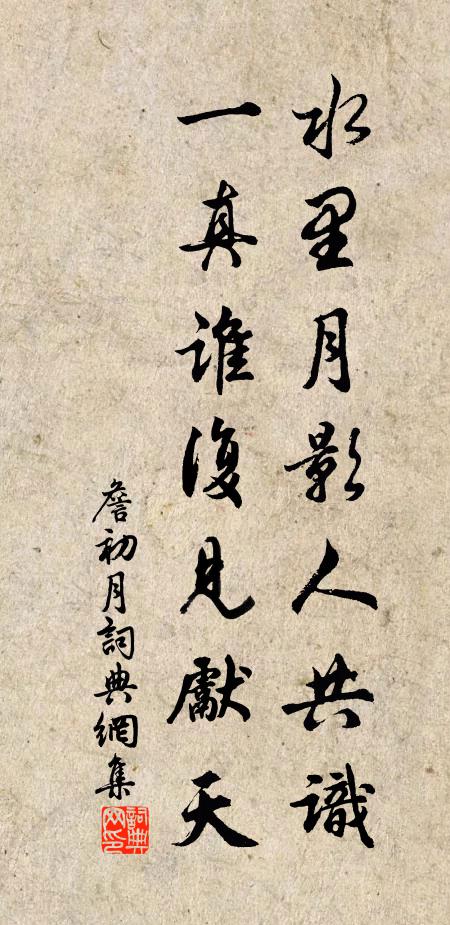 水里月影人共識
一真誰復見獻天
詹初月詞典網集
詞典网印